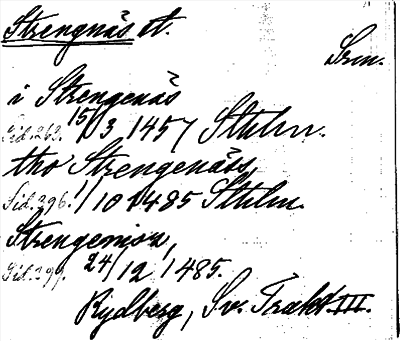 Strengnäs st.
Srm.
i Strengenäs
Sid. 263. 15/3 1457 Sthlm.
tho Strengenäss,
Sid. 296. 1/10 1485 Sthlm.
Strengenisa,
Sid. 299. 24/12 1485.
Rydberg, Sv. Trakt. III.